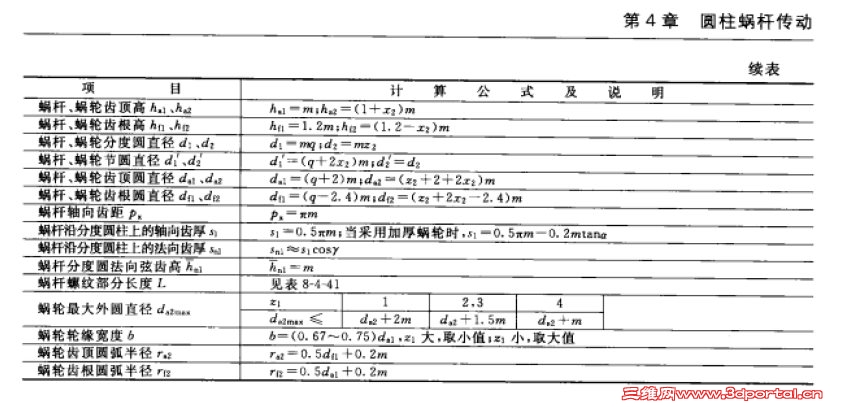 第 4 章 圆柱蜗杆传动
续表
项 目 计 算 公 式 及 说 明
蜗杆、蜗轮齿顶高 ha1、ha2 ha1=m;ha2=(1+x2)m
蜗杆、蜗轮齿根高 hf1、hf2 hf1=1.2m;hf2=(1.2-x2)m
蜗杆、蜗轮分度圆直径 d1、d2 d1=mq;d2=mz2
蜗杆、蜗轮节圆直径 d1′、d2′ d1′=(q+2x2)m;d2′=d2
蜗杆、蜗轮齿顶圆直径 da1、da2 da1=(q+2)m;da2=(z2+2+2x2)m
蜗杆、蜗轮齿根圆直径 df1、df2 df1=(q-2.4)m;df2=(z2+2x2-2.4)m
蜗杆轴向齿距 px px=πm
蜗杆沿分度圆柱上的轴向齿厚 s1 s1=0.5πm;当采用加厚蜗轮时,s1=0.5πm-0.2mtanα
蜗杆沿分度圆柱上的法向齿厚 sn1 sn1≈s1cosγ
蜗杆分度圆法向弦齿高 h̄n1 h̄n1=m
蜗杆螺纹部分长度 L 见表 8-4-41
蜗轮最大外圆直径 da2max z1 1 2,3 4
da2max ≤ da2+2m da2+1.5m da2+m
蜗轮轮缘宽度 b b=(0.67~0.75)da1,z1 大,取小值;z1 小,取大值
蜗轮齿顶圆弧半径 ra2 ra2=0.5df1+0.2m
蜗轮齿根圆弧半径 rf2 rf2=0.5da1+0.2m
三维网www.3dportal.cn